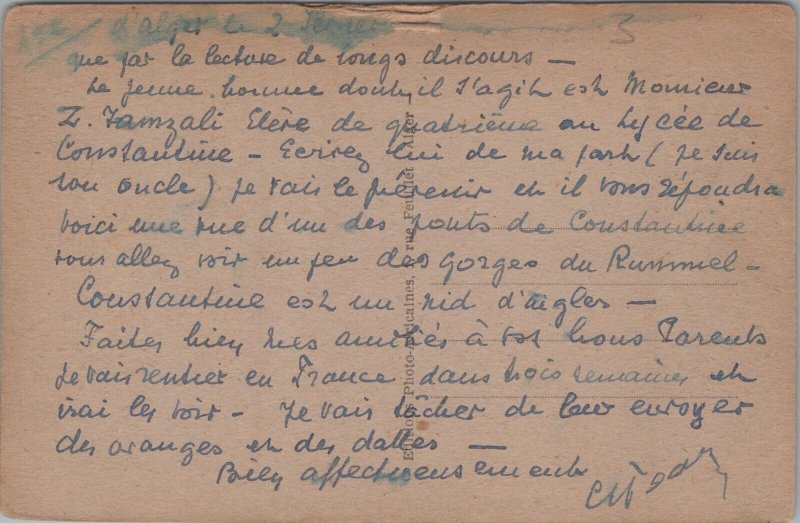 d'Alger le 2
3
que par la lecture de longs discours —
Le jeune homme dont il s'agit est Monsieur
Z. Tamzali Elève de quatrième au Lycée de
Constantine — Ecrivez lui de ma part (je suis
son oncle) je vais le prévenir et il vous répondra
voici une vue d'un des ponts de Constantine
vous allez voir un peu des gorges du Rummel —
Constantine est un nid d'aigles —
Faites bien mes amitiés à vos bons Parents
je vais rentrer en France dans trois semaines et
irai les voir — Je vais tâcher de leur envoyer
des oranges et des dattes —
Bien affectueusement
Photo-Africaines, rue Feuillet Alger